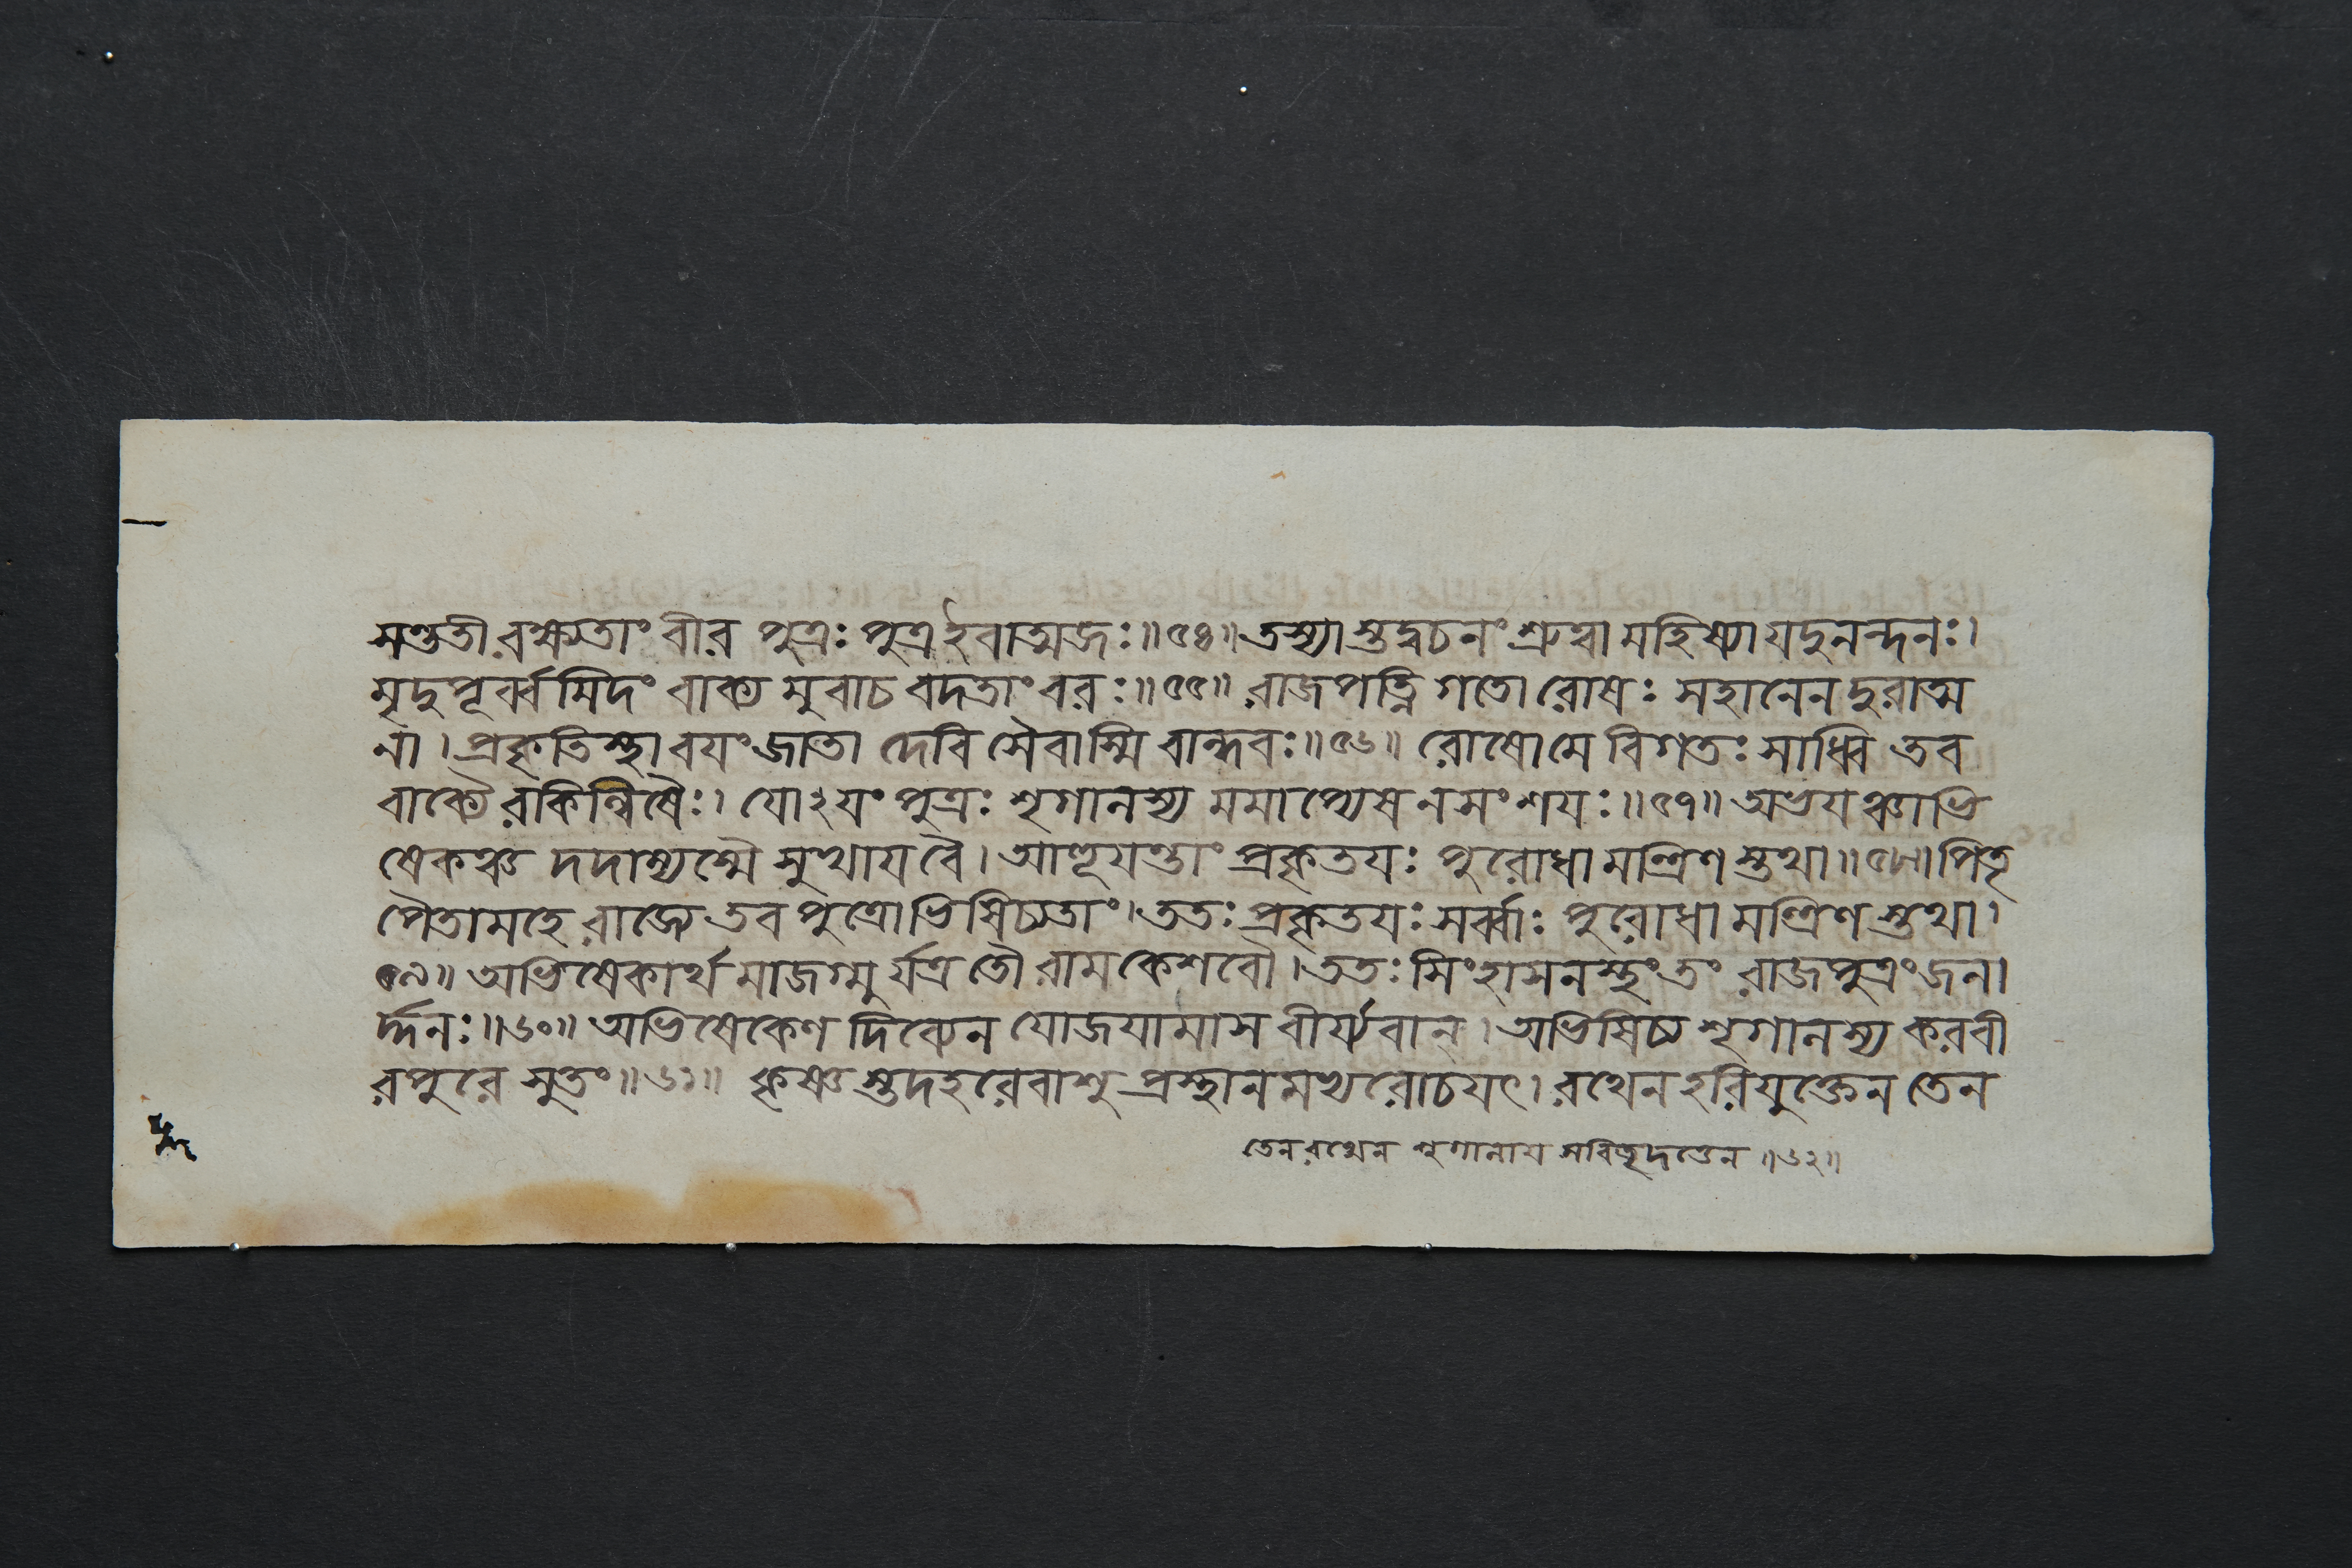 সণ্ডতীৰক্ষ্যেতাং বীৰ পুত্রঃ পুত্রইবাত্মজঃ॥৫৪॥তস্যাস্তদ্বচনং শ্রুত্বা মহিষ্যা যদুনন্দনঃ।
মৃদুপূৰ্ব্বমিদং বাক্য মুবাচ বদতাং বরঃ॥৫৫॥ ৰাজপত্নি গতো ৰোষঃ সহানেন দুৰাত্ম
না। প্রকৃতিস্থা বয়ং জাতা দেবি সৈবাস্মি বান্ধবঃ॥৫৬॥ ৰোষোমে বিগতঃ সাধ্বি তব
বাক্যৈ ৰকিল্বিষৈঃ। যোঽযং পুত্রঃ শৃগালস্য মমাপ্যেষ নসংশযঃ॥৫৭॥ অভযঞ্চাভি
ষেকঞ্চ দদাম্যস্মৈ সুখাযবৈ। আহূযন্তাং প্রকৃতযঃ পুৰোধা মন্ত্রিণস্তথা॥৫৮॥পিতৃ
পৈতামহে ৰাজ্যে তব পুত্রোভিষিচ্যতাং। ততঃ প্রকৃতযঃ সৰ্ব্বাঃ পুৰোধা মন্ত্রিণস্তথা।
৫৯॥ অভিষেকাৰ্থ মাজগ্মু ৰ্যত্র তৌ ৰামকেশবৌ। ততঃ সিংহাসনস্থং তং ৰাজপুত্রং জনা
ৰ্দ্দনঃ॥৬০॥ অভিষেকেণ দিব্যেন যোজযামাস বীৰ্য্যবান্। অভিষিচ্য শৃগালস্য কৰবী
ৰপুৰে সুতং॥৬১॥ কৃষ্ণস্তদহৰেবাশু প্রস্থানমভ্যৰোচযৎ। ৰথেন হৰিযুক্তেন তেন
তেন ৰথেন শৃগালায